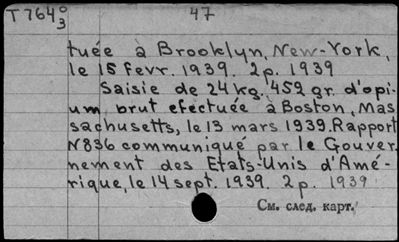 T7640/3 47
tuée à Brooklyn, New-York,
le 15 fevr. 1939. 2p. 1939
Saisie de 24 kg. 452 gr. d'opi-
um brut efectuée à Boston, Mas
sachusetts, le 13 mars 1939. Rapport
N836 communiqué par le Gouver-
nement des Etats-Unis d'Amé-
rique, le 14 sept. 1939. 2p. 1939
См. след. карт.